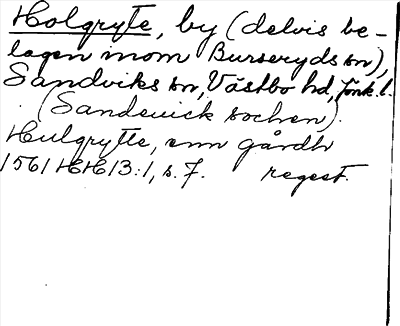 Holgryte, by (delvis be-
lagen inom Burseryds sn),
Sandviks sn, Västbo hd, Jönk. l.
(Sandeuick sochen).
Hulgrytte, enn gårdh
1561 HH 13:1, s. 7. regest.